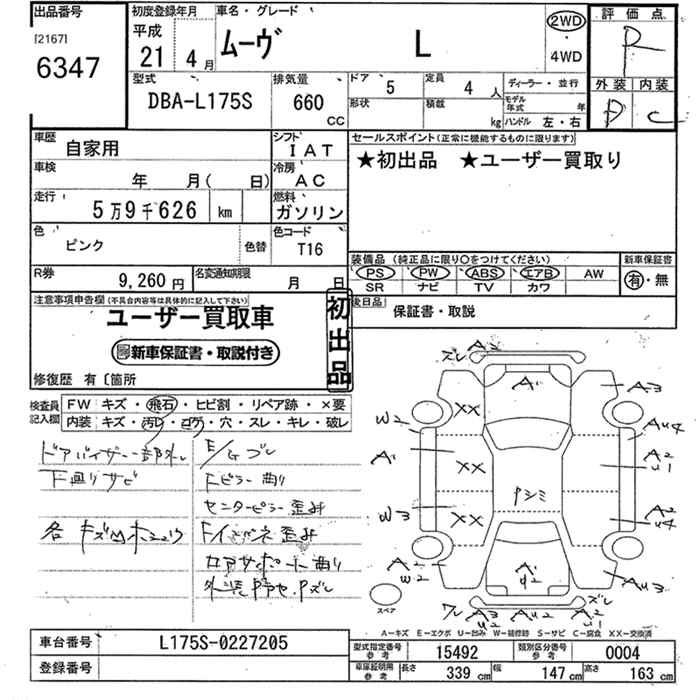 出品番号 初度登録年月 車名・グレード 評価点
[2167] 平成 ムーヴ L 2WD R
6347 21 4月 4WD 外装 内装
型式 排気量 ドア 5 定員 4人 ディーラー・並行 D C
DBA-L175S 660 CC 形状 積載 kg モデル年式 年
ハンドル 左・右
車歴 自家用 シフト IAT セールスポイント(正常に機能するものに限ります)
車検 年 月( 日) 冷房 AC ★初出品 ★ユーザー買取り
走行 5万9千626 km 燃料 ガソリン
色 ピンク 色替 色コード T16
装備品(純正品に限り○をつけてください) 新車保証書
R券 9,260円 名変通知期限 月 日 PS PW ABS エアB AW 有・無
SR ナビ TV カワ
注意事項申告欄(不具合内容等は具体的に記入して下さい) 初出品 後日品 保証書・取説
ユーザー買取車
新車保証書・取説付き
修復歴 有〔箇所
検査員記入欄 FW キズ・飛石・ヒビ割・リペア跡・×要
内装 キズ・汚レ・コゲ・穴・スレ・キレ・破レ
ドアバイザー一部外レ
下廻りサビ
各キズ凹
E/Gブレ
Fピラー曲り
センターピラー歪み
Fインパネ歪み
コアサポート曲り
ズレ A2
A1 A3
XX
W2 AU4
A1 XX A2 U1
Pシミ
W3 XX A2 U4
A2 W2 A1 U2 AU3
スペア
ワレ A3 U2 AU2 A2 U1 ズレ
A-キズ E-エクボ U-凹み W-補修跡 S-サビ C-腐食 XX-交換済
車台番号 L175S-0227205 型式指定番号 参考 15492 類別区分番号 参考 0004
登録番号 車庫証明用 参考 長さ 339 cm 幅 147 cm 高さ 163 cm